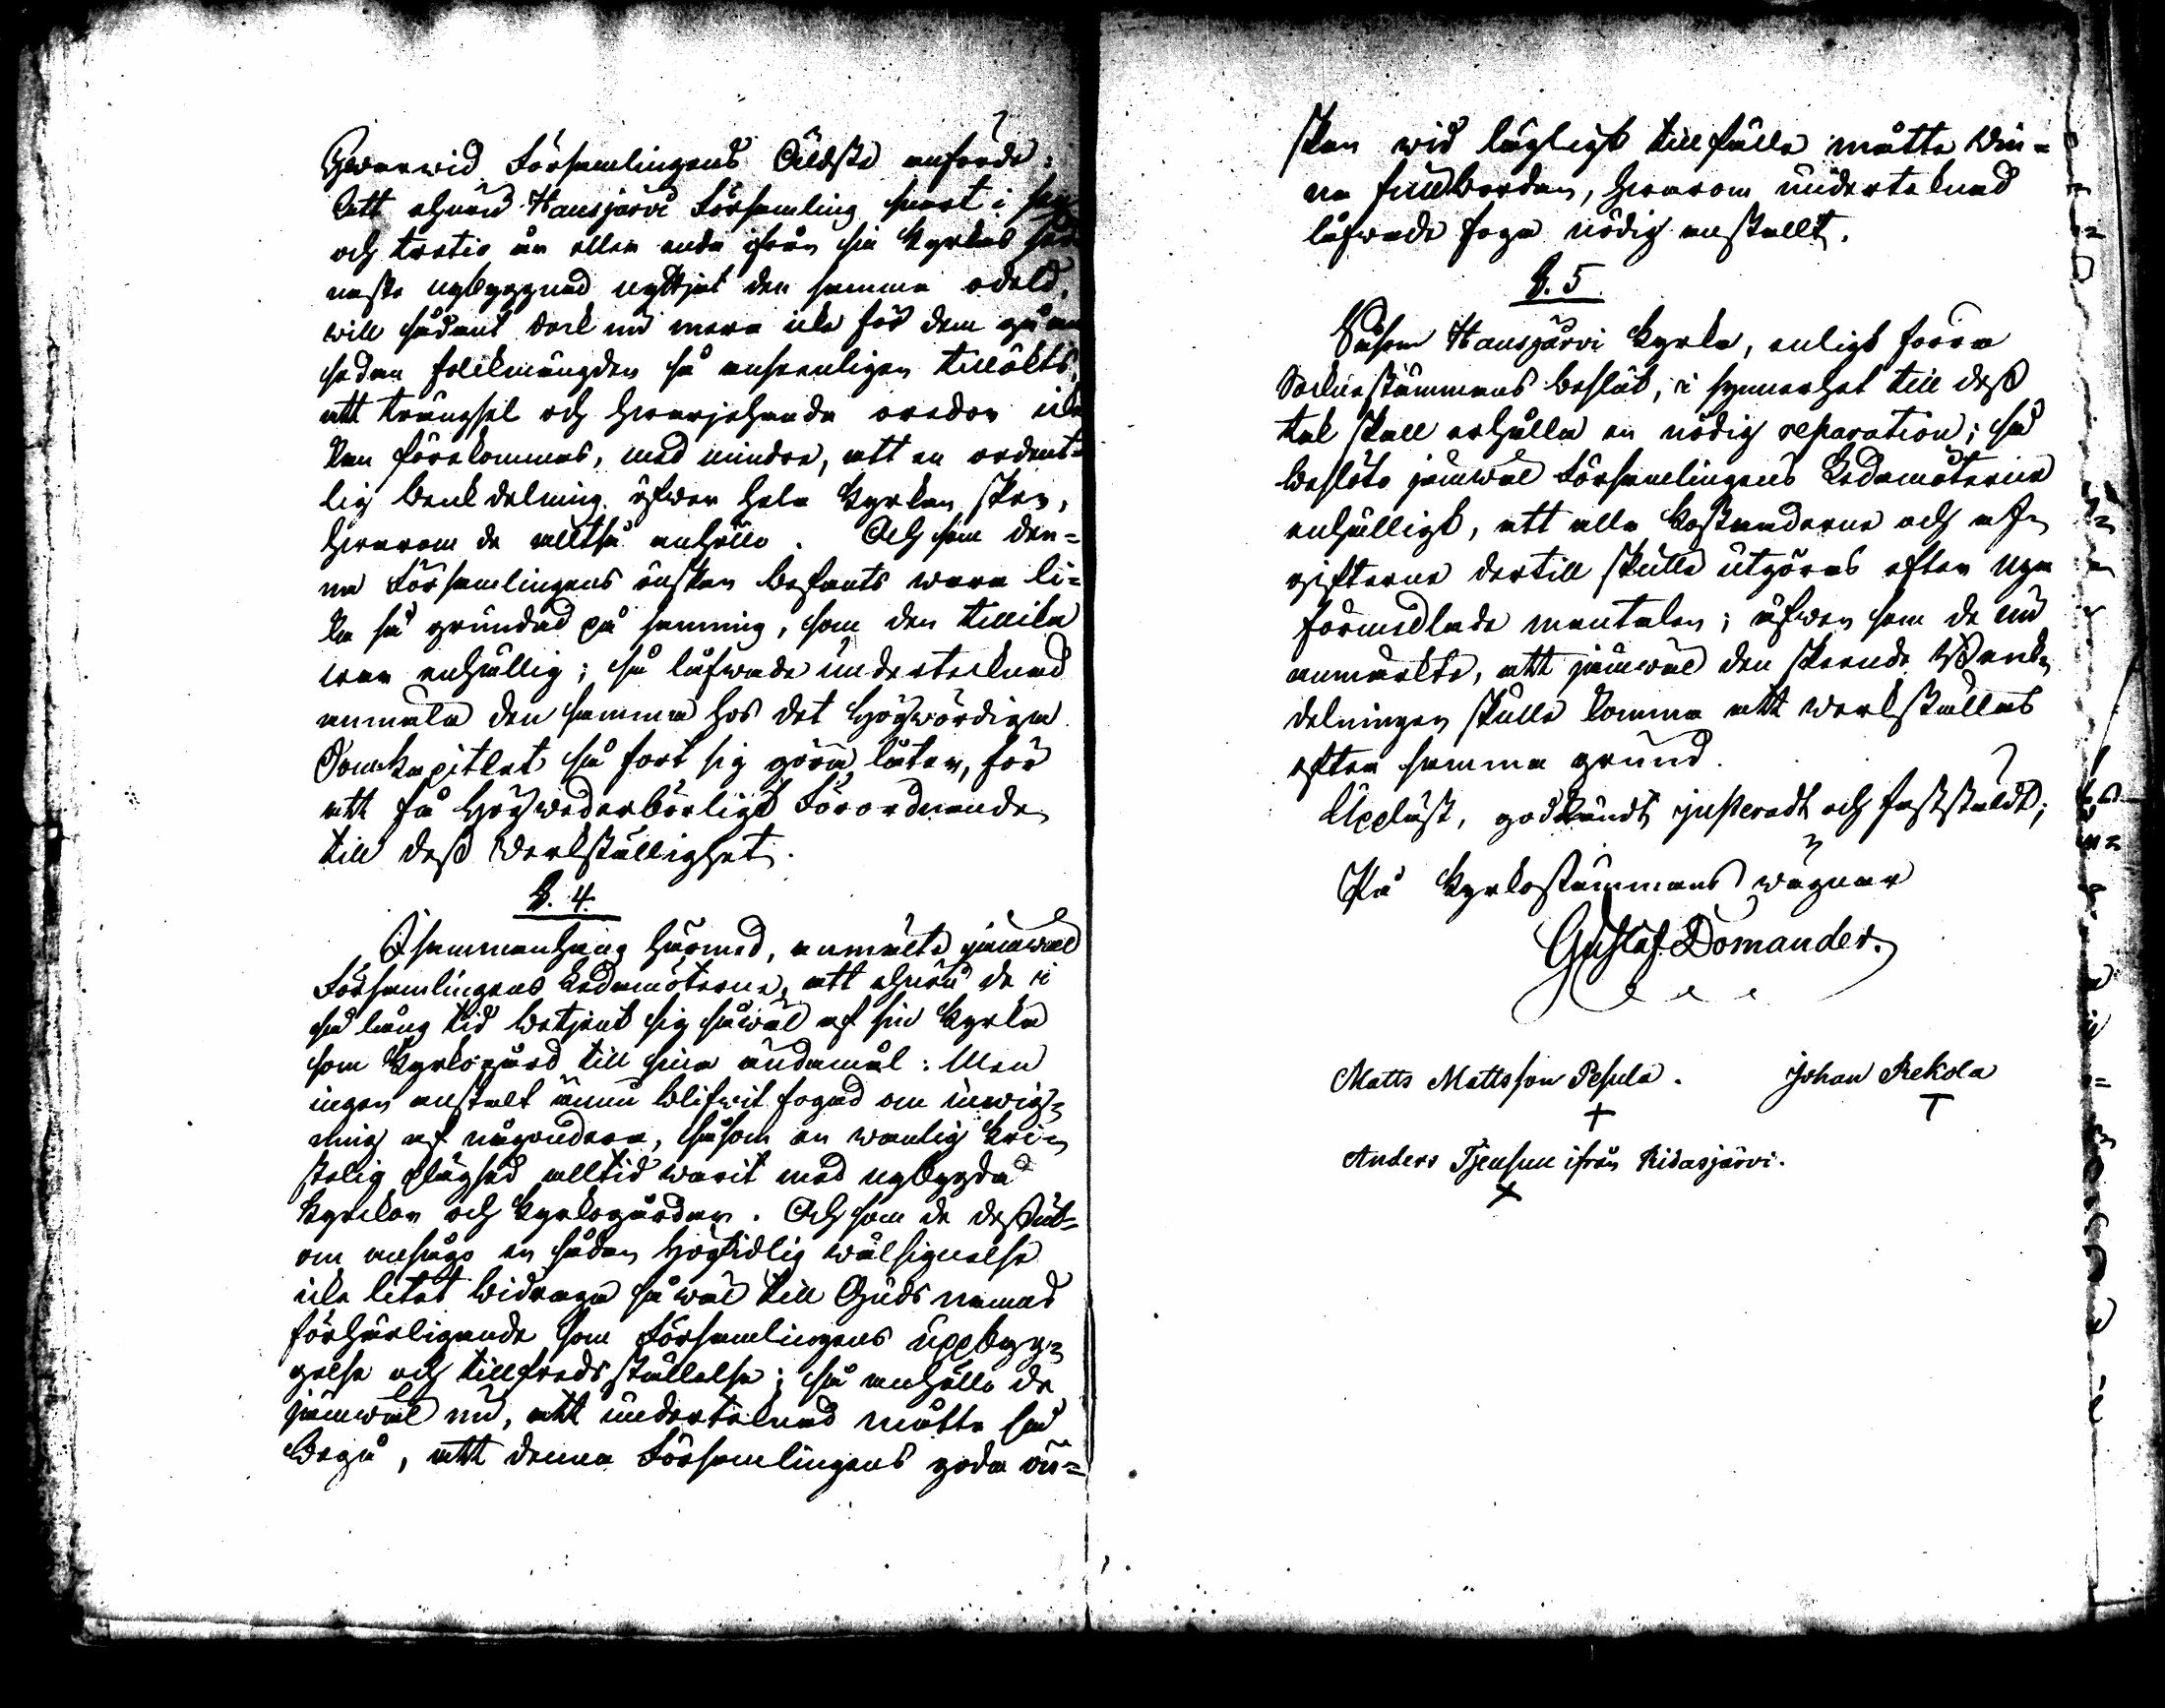 Hwarwid Församlingens Äldste anförde:
Att ehuru Hausjärvi Församling snart i
och tretio år eller anda ifrån sin Kyrkas
naste nybyggnad nyttjat den samma odeld,
will sådant dock nu mera icke för dem gå an
sedan folckmängden så ansenligen tillökts,
att trängsel och hwarjehanda oredor icke
kan förekommas, med mindre, att en ordent-
lig bänkdelning öfwer hela Kyrkan sker,
hwarom de alltså anhöllo. Och som den-
na Församlingens önskan befants wara li-
ka så grundad på sanning, som den tillika
war enhällig; så låfwade undertecknad
anmäla den samma hos det Högwördiga
Domkapitlet så fort sig göra låter, för
att få Högwederbörligt Förordnande
till dess werkställighet.
§. 4.
I sammanhang härmed, anmälte jämwäl
Församlingens Ledamöterne, att ehuru de i
så lång tid betjent sig såwäl af sin Kyrka
som Kyrkogård till sina ändamål: Men
ingen anstalt ännu blifwit fogad om inwig-
ning af någondera, såsom en wanlig kri-
stelig plägsed alltid warit med nybygda
Kyrckor och Kyrkogårdar. Och som de dessut-
om ansågo en sådan högtidlig wälsignelse
icke litet bidraga såwäl till Guds namns
förhärligande som Församlingens uppbyg-
gelse och tillfredsställelse; så anhöllo de
jämwäl nu, att undertecknad måtte
begå, att denna Församlingens goda ön-
skan wid lägligt tillfälle måtte win-
na fullbordan, hwarom undertecknad
låfwade foga nödig anstallt.
§. 5.
Såsom Hausjärvi Kyrka, enligt förra
Sockenstämmans beslut, i synnerhet till dess
tak skall erhålla en nödig reparation; så
beslöto jämwäl Församlingens Ledamöterne
enhälligt, att alla kostnaderne och af-
gifterne dertill skulle utgöras efter nya
förmedlade mantalen; äfwen som de nu
anmärkte, att jämwäl den skeende Bänk-
delningen skulle komma att werkställas
efter samma grund.
Uppläst, godkändt, justeradt och faststäldt;
På Kyrkostämmans wägnar
Gustaf Domander.
Matts Mattsson Pesula. Johan Rekola
Anders ifrån Ridasjärvi.